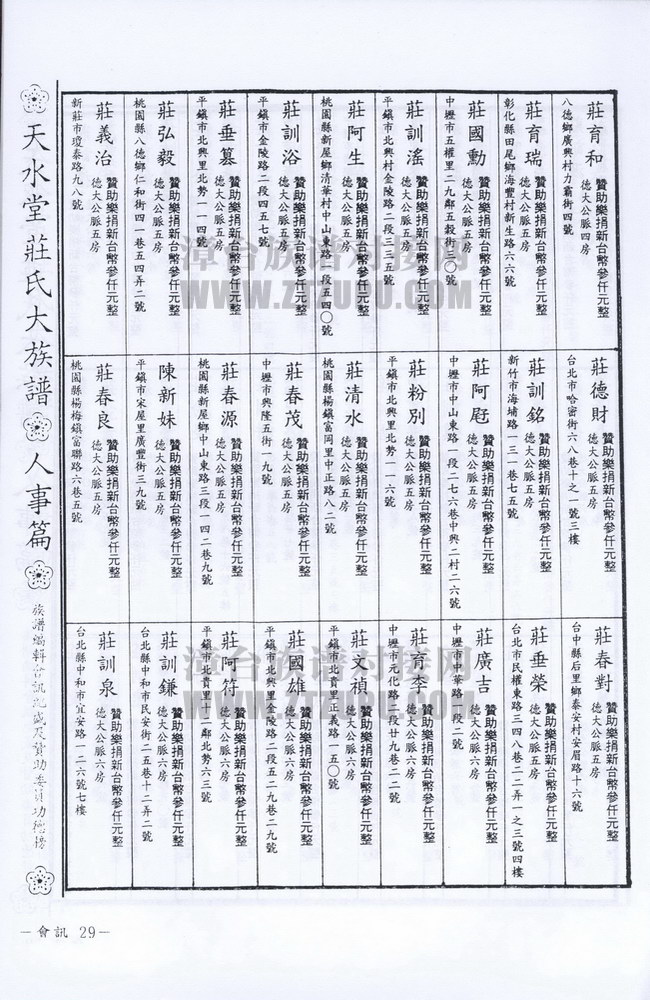 莊育和
贊助樂捐新台幣參仟元整
德大公脈四房
八德鄉廣興村力霸街四號
莊育瑞
贊助樂捐新台幣參仟元整
德大公脈五房
彰化縣田尾鄉海豐村新生路六六號
莊國勳
贊助樂捐新台幣參仟元整
德大公脈五房
中壢市五權里二九鄰五穀街三〇號
莊訓滛
贊助樂捐新台幣參仟元整
德大公脈五房
平鎮市北興村金陵路二段三三五號
莊阿生
贊助樂捐新台幣參仟元整
德大公脈五房
桃園縣新屋鄉清華村中山東路一段五四〇號
莊訓浴
贊助樂捐新台幣參仟元整
德大公脈五房
平鎮市金陵路二段四五七號
莊垂纂
贊助樂捐新台幣參仟元整
德大公脈五房
平鎮市北興里北勢一一四號
莊弘毅
贊助樂捐新台幣參仟元整
德大公脈五房
桃園縣八德鄉仁和街四一巷五四弄二號
莊義治
贊助樂捐新台幣參仟元整
德大公脈五房
新莊市瓊泰路九八號
莊德財
贊助樂捐新台幣參仟元整
德大公脈五房
台北市哈密街六八巷十之一號三樓
莊訓銘
贊助樂捐新台幣參仟元整
德大公脈五房
新竹市海埔路一三一巷七五號
莊阿
贊助樂捐新台幣參仟元整
德大公脈五房
中壢市中山東路一段二七六巷中興二村二六號
莊粉別
贊助樂捐新台幣參仟元整
德大公脈五房
平鎮市北興里北勢一一六號
莊清水
贊助樂捐新台幣參仟元整
德大公脈五房
桃園縣楊鎮富岡里中正路八二號
莊春茂
贊助樂捐新台幣參仟元整
德大公脈五房
中壢市興隆五街一九號
莊春源
贊助樂捐新台幣參仟元整
德大公脈五房
桃園縣新屋鄉中山東路三段一四二巷九號
陳新妹
贊助樂捐新台幣參仟元整
德大公脈五房
平鎮市宋屋里廣豐街三九號
莊春良
贊助樂捐新台幣參仟元整
德大公脈五房
桃園縣楊梅鎮富聯路六巷五號
莊春對
贊助樂捐新台幣參仟元整
德大公脈五房
台中縣后里鄉泰安村安眉路十六號
莊垂榮
贊助樂捐新台幣參仟元整
德大公脈五房
台北市民權東路三四八巷二二弄一之三號四樓
莊廣吉
贊助樂捐新台幣參仟元整
德大公脈六房
中壢市中華路一段二號
莊育李
贊助樂捐新台幣參仟元整
德大公脈六房
中壢市元化路二段廿九巷二二號
莊文禎
贊助樂捐新台幣參仟元整
德大公脈六房
平鎮市北貴里正義路一五〇號
莊國雄
贊助樂捐新台幣參仟元整
德大公脈六房
平鎮市北興里金陵路二段五二九巷二九號
莊阿符
贊助樂捐新台幣參仟元整
德大公脈六房
平鎮市北貴里十二鄰北勢六三號
莊訓鎌
贊助樂捐新台幣參仟元整
德大公脈六房
台北縣中和市民安街二五巷十二弄二號
莊訓泉
贊助樂捐新台幣參仟元整
德大公脈六房
台北縣中和市宜安路一二六號七樓
天水堂莊氏大族譜 人事篇
族譜編輯會訊紀盛及贊助委員功德榜
—會訊 29—
漳台族谱对接网
WWW.ZTZUPU.COM
漳台族谱对接网
WWW.ZTZUPU.COM